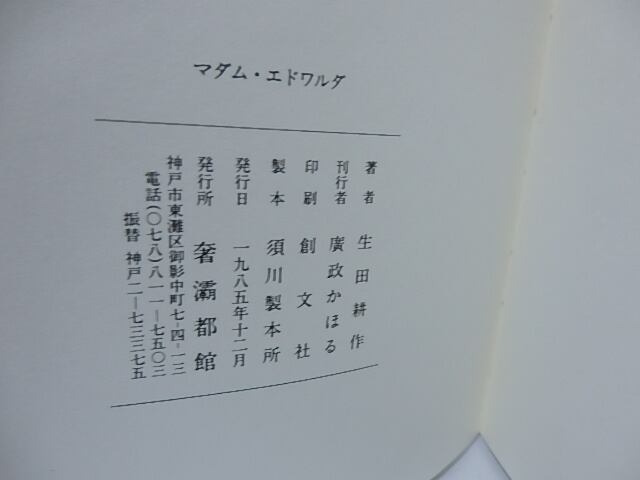 マダム・エドワルダ
著者 生田耕作
刊行者 廣政かほる
印刷 創文社
製本 須川製本所
発行日 一九八五年十二月
発行所 奢灞都館
神戸市東灘区御影中町七-四-一三
電話(〇七八)八一一-七五〇三
振替 神戸二-七三三七五